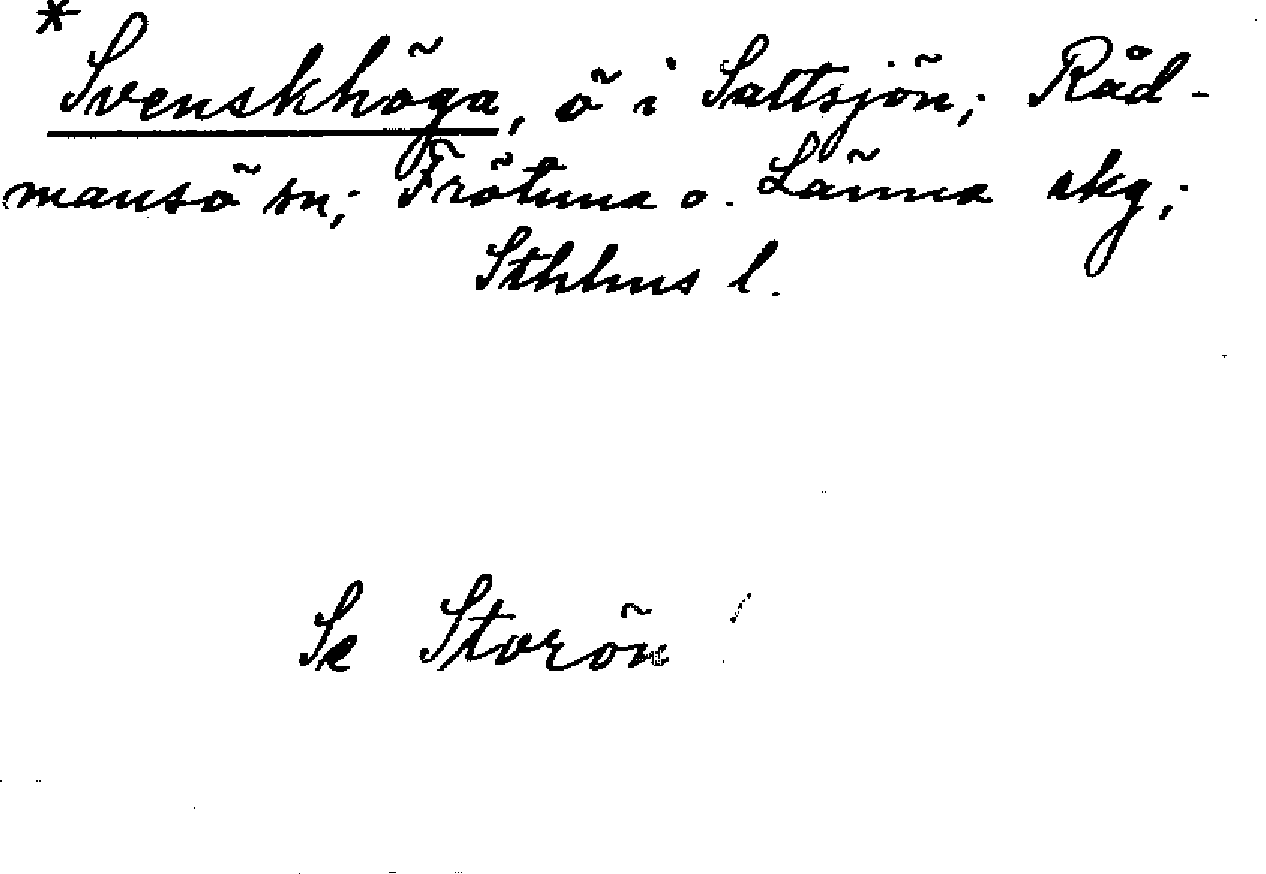 *Svenskhöga, ö i Saltsjön; Råd-
mansö sn; Frötuna o. Länna skg;
Sthlms l.
Se Storön